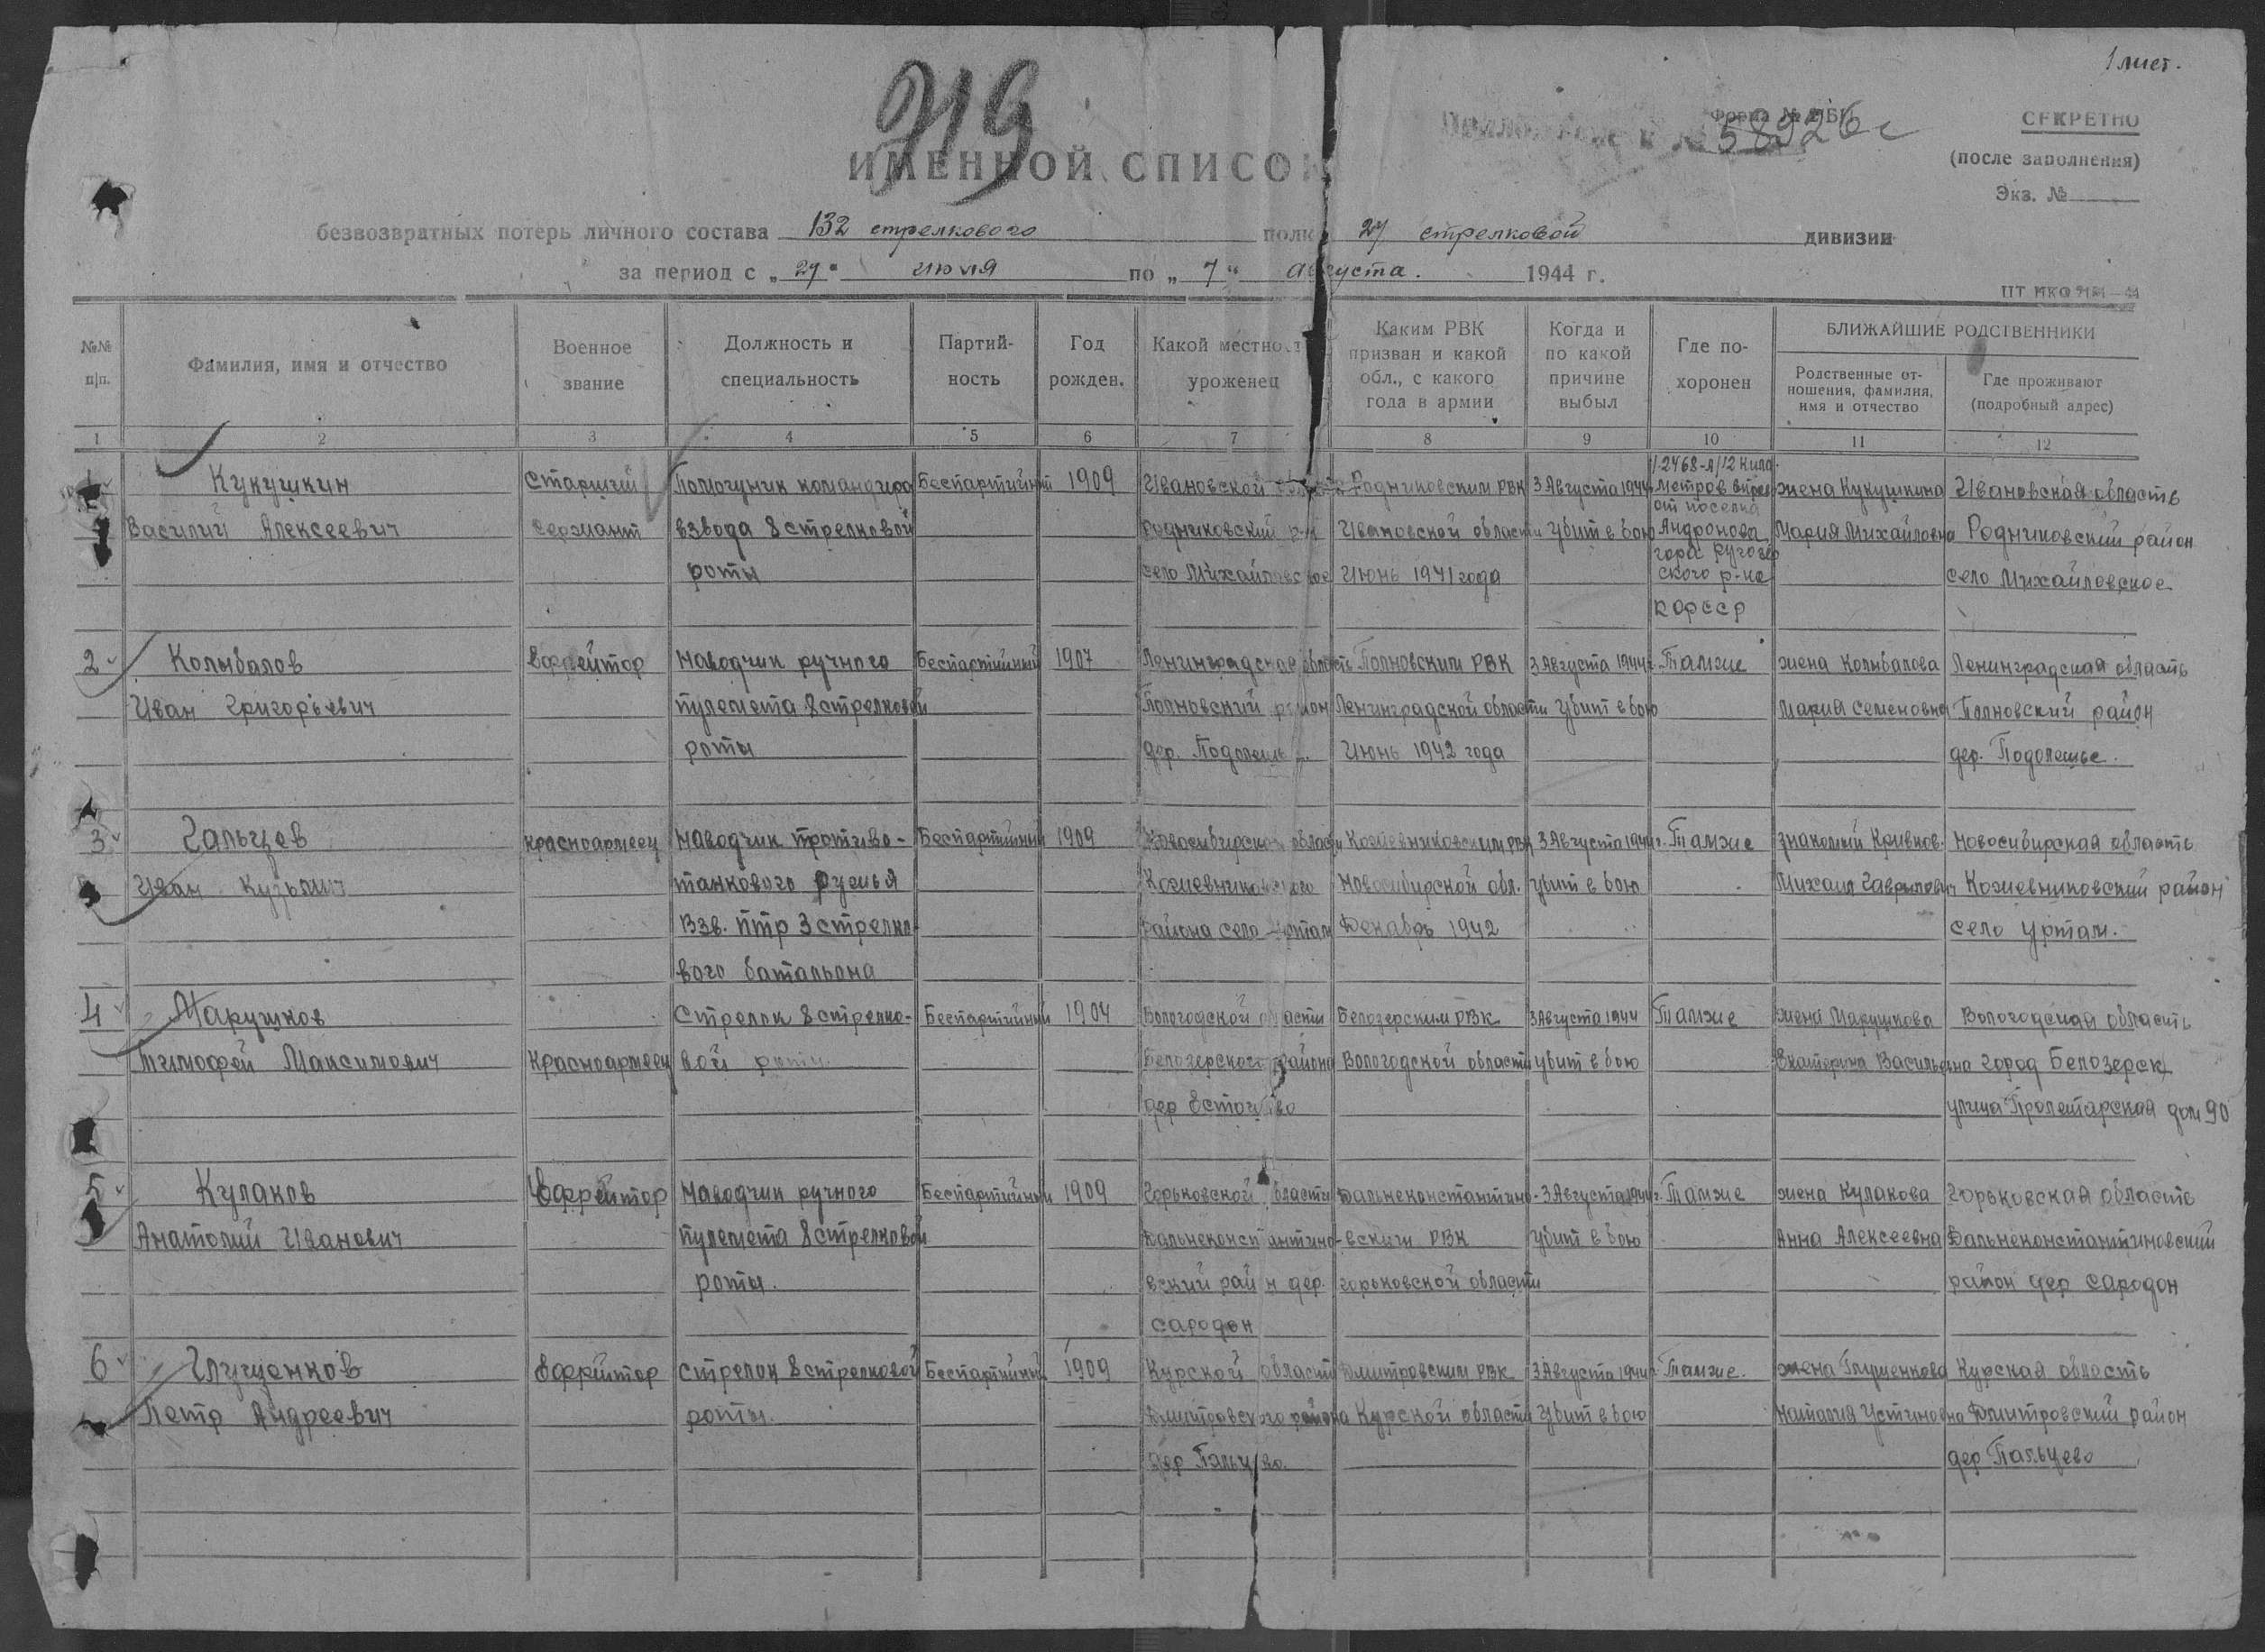 1 лист.
319
Форма № 2/БП
58926с
СЕКРЕТНО
(после заполнения)
Экз. №
ИМЕННОЙ СПИСОК
безвозвратных потерь личного состава 132 стрелкового полк 27 стрелковой дивизии
за период с „29“ июля по „7“ августа. 1944 г.
№№ п|п.
Фамилия, имя и отчество
Военное звание
Должность и специальность
Партий-ность
Год рожден.
Какой местност уроженец
Каким РВК призван и какой обл., с какого года в армии
Когда и по какой причине выбыл
Где по-хоронен
БЛИЖАЙШИЕ РОДСТВЕННИКИ
Родственные от-ношения, фамилия, имя и отчество
Где проживают (подробный адрес)
1 2 3 4 5 6 7 8 9 10 11 12
Кукушкин Старший Помощник командира Беспартийный 1909 Ивановской Родниковским РВК 3 Августа 1944 метров жена Кукушкина Ивановская область
от поселка
Василий Алексеевич сержант взвода 8 стрелковой Родниковский р-н Ивановской области убит в бою Андронова Мария Михайловна Родниковский район
гора
роты село Михайловское Июнь 1941 года ского р-на село Михайловское
КФССР
2 Колыбалов Ефрейтор Наводчик ручного Беспартийный 1907 Ленинградская область Полновским РВК 3 Августа 1944 г. Там же жена Колыбалова Ленинградская область
Иван Григорьевич пулемета 8 стрелковой Полновский район Ленинградской области Убит в бою Мария Семеновна Полновский район
роты дер. Июнь 1942 года дер. Подолешье.
3 Гальцев красноармеец Наводчик противо- Беспартийный 1909 Новосибирской области Кожевниковским РВК 3 Августа 1944 г. Там же знакомый Новосибирская область
Иван Кузьмич танкового ружья Кожевниковского Новосибирской обл. убит в бою Михаил Гаврилович Кожевниковский район
Взв. птр 3 стрелко района село Уртам Декабрь 1942 село Уртам.
вого батальона
4 Марушков Стрелок 8 стрелко- Беспартийный 1904 Вологодской области Белозерским РВК 3 Августа 1944 Там же жена Марушкова Вологодская область
Тимофей Максимович Красноармеец вой роты Белозерского района Вологодской области убит в бою Екатерина Васильевна город Белозерск
дер улица Пролетарская дом 90
5 Кулаков Ефрейтор Наводчик ручного Беспартийный 1909 Горьковской области Дальнеконстантино- 3 Августа 1944 г. Там же жена Кулакова Горьковская область
Анатолий Иванович пулемета 8 стрелковой Дальнеконстантино- вским РВК убит в бою Анна Алексеевна Дальнеконстантиновский
роты. вский район дер. горьковской области район дер сародон
сародон
6 Глущенков Ефрейтор стрелок 8 стрелковой Беспартийный 1909 Курской области Дмитровским РВК 3 Августа 1944 г. Там же. жена Глущенкова Курская область
Петр Андреевич роты. Дмитровского района Курской области Убит в бою Наталия Устиновна Дмитровский район
дер Пальцево. дер Пальцево